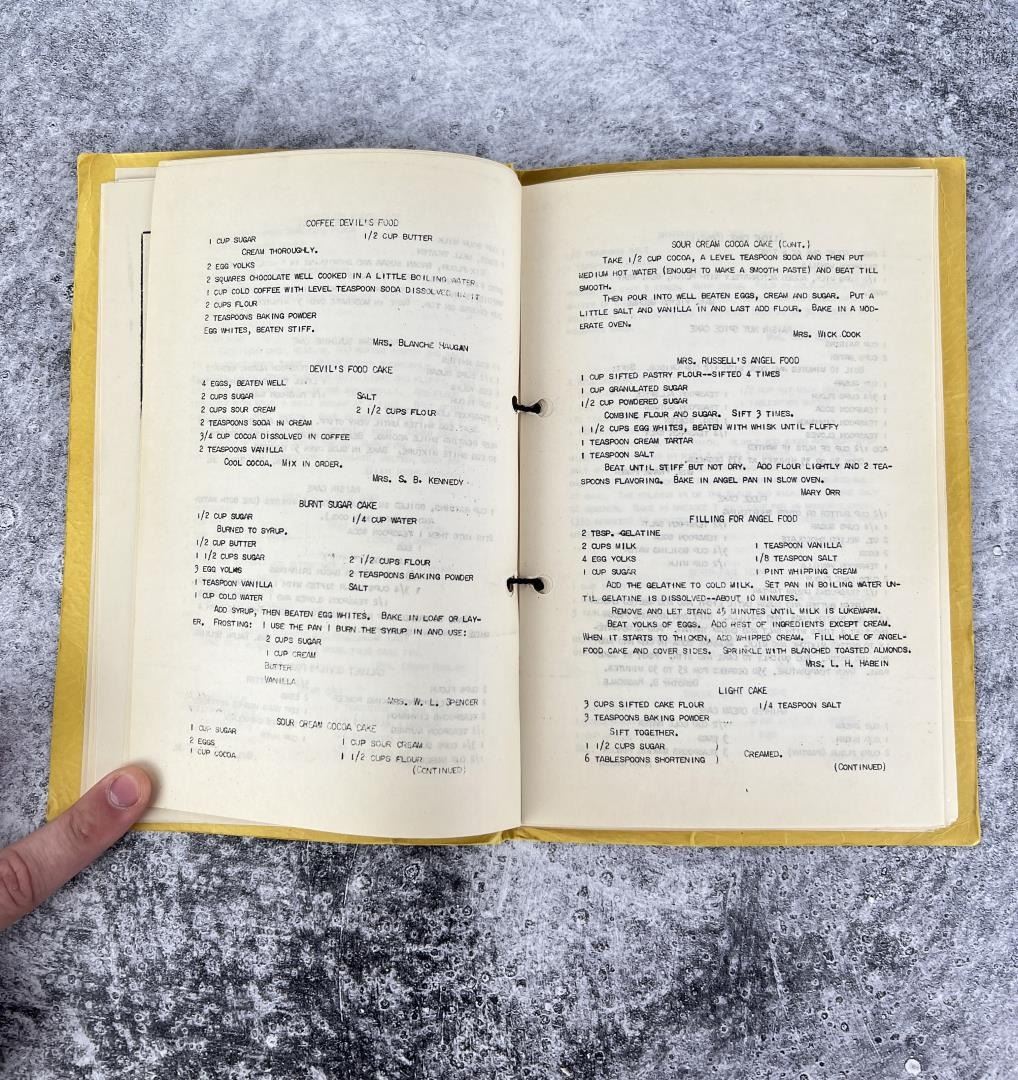 COFFEE DEVIL'S FOOD
1 CUP SUGAR 1/2 CUP BUTTER
CREAM THOROUGHLY.
2 EGG YOLKS
2 SQUARES CHOCOLATE WELL COOKED IN A LITTLE BOILING WATER
1 CUP COLD COFFEE WITH LEVEL TEASPOON SODA DISSOLVED IN IT
2 CUPS FLOUR
2 TEASPOONS BAKING POWDER
EGG WHITES, BEATEN STIFF.
MRS. BLANCHE HAUGAN
DEVIL'S FOOD CAKE
4 EGGS, BEATEN WELL
2 CUPS SUGAR SALT
2 CUPS SOUR CREAM 2 1/2 CUPS FLOUR
2 TEASPOONS SODA IN CREAM
3/4 CUP COCOA DISSOLVED IN COFFEE
2 TEASPOONS VANILLA
COOL COCOA. MIX IN ORDER.
MRS. S. B. KENNEDY
BURNT SUGAR CAKE
1/2 CUP SUGAR 1/4 CUP WATER
BURNED TO SYRUP.
1/2 CUP BUTTER
1 1/2 CUPS SUGAR 2 1/2 CUPS FLOUR
3 EGG YOLKS 2 TEASPOONS BAKING POWDER
1 TEASPOON VANILLA SALT
1 CUP COLD WATER
ADD SYRUP, THEN BEATEN EGG WHITES. BAKE IN LOAF OR LAY-
ER. FROSTING: I USE THE PAN I BURN THE SYRUP IN AND USE:
2 CUPS SUGAR
1 CUP CREAM
BUTTER
VANILLA
MRS. W. L. SPENCER
SOUR CREAM COCOA CAKE
1 CUP SUGAR
2 EGGS 1 CUP SOUR CREAM
1 CUP COCOA 1 1/2 CUPS FLOUR
(CONTINUED)
SOUR CREAM COCOA CAKE (CONT.)
TAKE 1/2 CUP COCOA, A LEVEL TEASPOON SODA AND THEN PUT
MEDIUM HOT WATER (ENOUGH TO MAKE A SMOOTH PASTE) AND BEAT TILL
SMOOTH.
THEN POUR INTO WELL BEATEN EGGS, CREAM AND SUGAR. PUT A
LITTLE SALT AND VANILLA IN AND LAST ADD FLOUR. BAKE IN A MOD-
ERATE OVEN.
MRS. WICK COOK
MRS. RUSSELL'S ANGEL FOOD
1 CUP SIFTED PASTRY FLOUR--SIFTED 4 TIMES
1 CUP GRANULATED SUGAR
1/2 CUP POWDERED SUGAR
COMBINE FLOUR AND SUGAR. SIFT 3 TIMES.
1 1/2 CUPS EGG WHITES, BEATEN WITH WHISK UNTIL FLUFFY
1 TEASPOON CREAM TARTAR
1 TEASPOON SALT
BEAT UNTIL STIFF BUT NOT DRY. ADD FLOUR LIGHTLY AND 2 TEA-
SPOONS FLAVORING. BAKE IN ANGEL PAN IN SLOW OVEN.
MARY ORR
FILLING FOR ANGEL FOOD
2 TBSP. GELATINE
2 CUPS MILK 1 TEASPOON VANILLA
4 EGG YOLKS 1/8 TEASPOON SALT
1 CUP SUGAR 1 PINT WHIPPING CREAM
ADD THE GELATINE TO COLD MILK. SET PAN IN BOILING WATER UN-
TIL GELATINE IS DISSOLVED--ABOUT 10 MINUTES.
REMOVE AND LET STAND 45 MINUTES UNTIL MILK IS LUKEWARM.
BEAT YOLKS OF EGGS. ADD REST OF INGREDIENTS EXCEPT CREAM.
WHEN IT STARTS TO THICKEN, ADD WHIPPED CREAM. FILL HOLE OF ANGEL-
FOOD CAKE AND COVER SIDES. SPRINKLE WITH BLANCHED TOASTED ALMONDS.
MRS. L. H. HABEIN
LIGHT CAKE
3 CUPS SIFTED CAKE FLOUR 1/4 TEASPOON SALT
3 TEASPOONS BAKING POWDER
SIFT TOGETHER.
1 1/2 CUPS SUGAR )
6 TABLESPOONS SHORTENING ) CREAMED.
(CONTINUED)